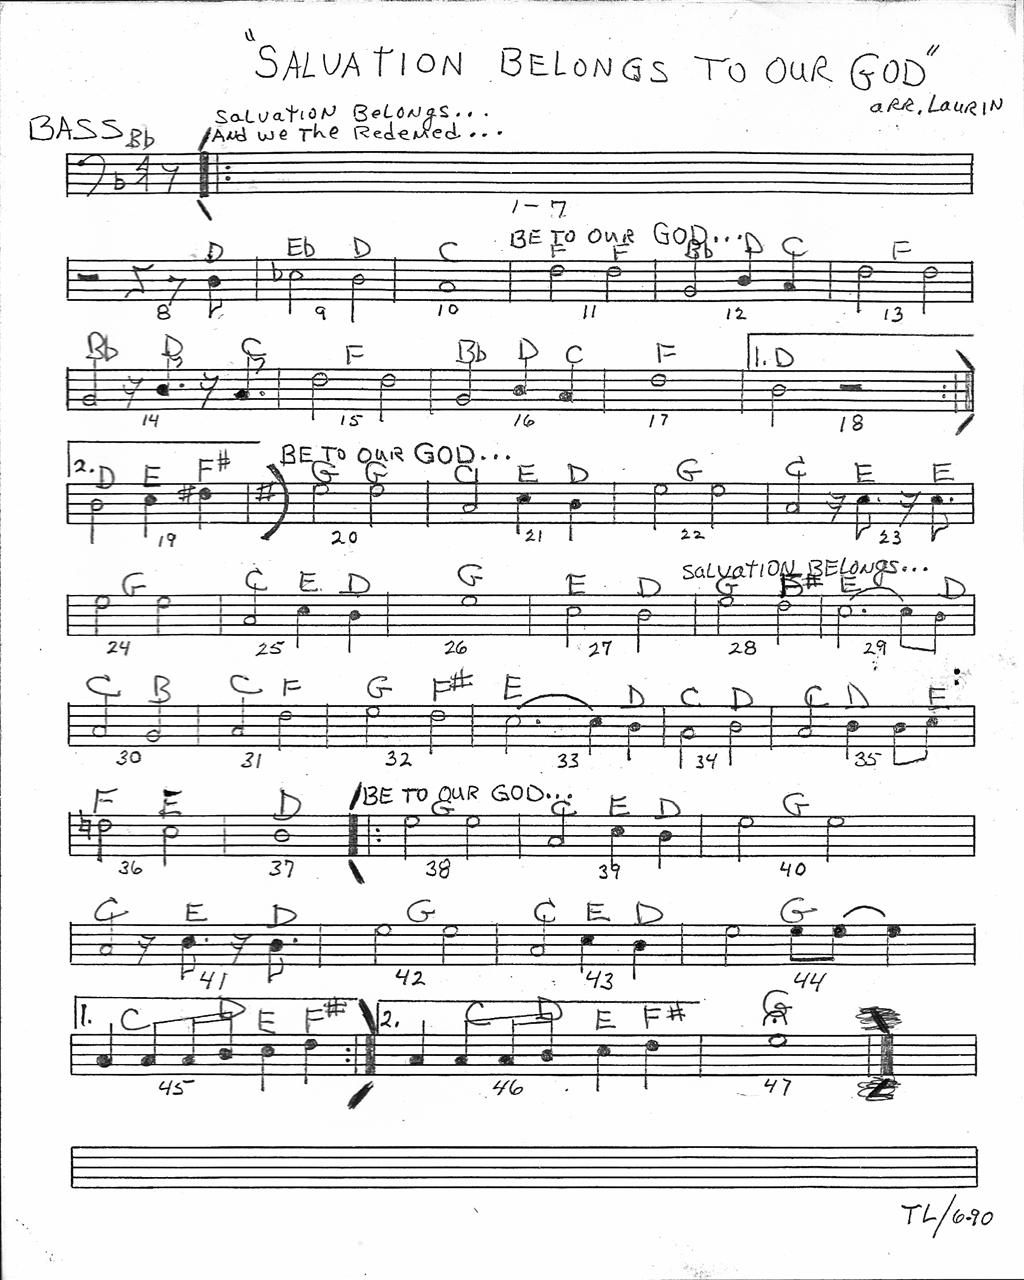 "SALVATION BELONGS TO OUR GOD"
arr. Laurin
BASS Bb
Salvation Belongs...
And we The Redemed...
1-7
BE TO OUR GOD...
D Eb D C F F Bb D C F
8 9 10 11 12 13
Bb D C F Bb D C F 1. D
14 15 16 17 18
BE TO OUR GOD...
2. D E F# G G C E D G C E E
19 20 21 22 23
SALVATION BELONGS...
G C E D G E D G F# E D
24 25 26 27 28 29
C B C F G F# E D C D C D E
30 31 32 33 34 35
BE TO OUR GOD...
F E D G C E D G
36 37 38 39 40
C E D G C E D G
41 42 43 44
1. C D E F# 2. C D E F# G
45 46 47
TL/6-90